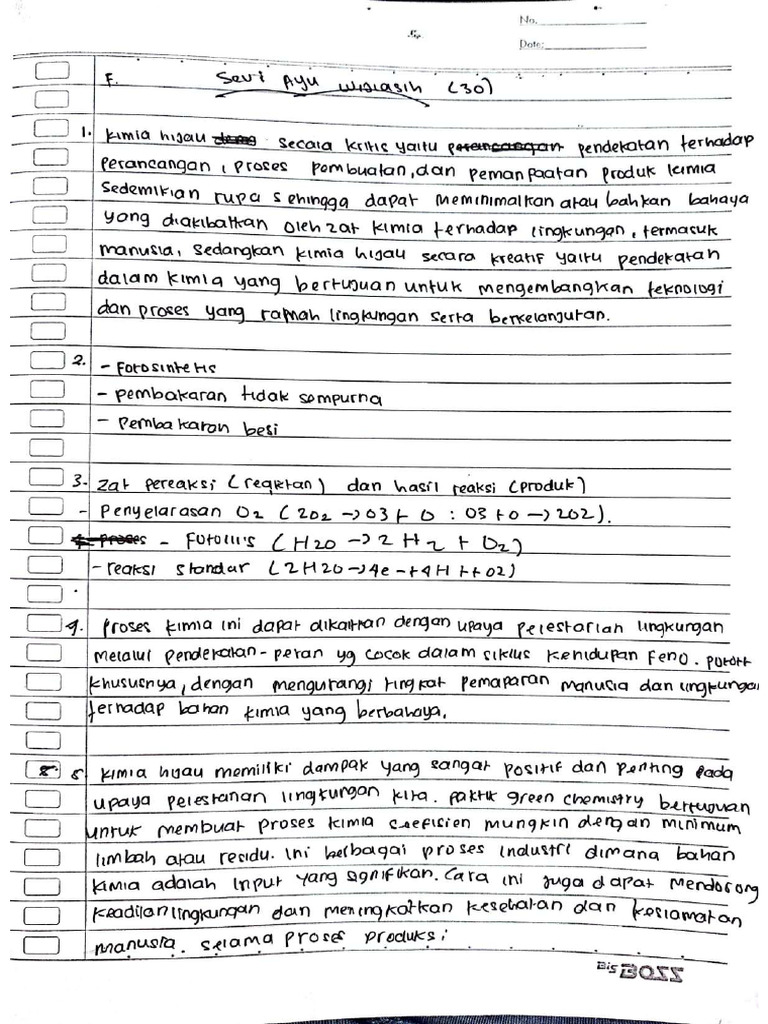 No.
Date:
F. Sevi Ayu (30)
1. kimia hijau secara kritis yaitu perancangan pendekatan terhadap
perancangan, proses pombuatan, dan pemanpaatan produk kimia
Sedemikian rupa sehingga dapat meminimalkan atau bahkan bahaya
yang diakibatkan oleh zat kimia terhadap lingkungan, termasuk
manusia, sedangkan kimia hijau secara kreatif yaitu pendekatan
dalam kimia yang bertujuan untuk mengembangkan teknologi
dan proses yang ramah lingkungan serta berkelanjutan.
2. - Fotosintetis
- pembakaran tidak sempurna
- Pembakaran besi
3. Zat pereaksi (reaktan) dan hasil reaksi (produk)
- Penyelarasan O2 (2O2 → O3 + O : O3 + O → 2O2).
proses - Fotolisis (H2O → 2H2 + O2)
- reaksi standar (2H2O → 4e - + 4H + + O2)
4. Proses kimia ini dapat dikaitkan dengan upaya pelestarian lingkungan
melalui pendekatan - peran yg cocok dalam siklus kehidupan
khususnya, dengan mengurangi tingkat pemaparan manusia dan lingkungan
terhadap bahan kimia yang berbahaya.
5 kimia hijau memiliki dampak yang sangat positif dan penting pada
upaya pelestarian lingkungan kita. paktik green chemistry bertujuan
untuk membuat proses kimia mungkin dengan minimum
limbah atau residu. ini berbagai proses industri dimana bahan
kimia adalah input yang signifikan. Cara ini juga dapat mendorong
keadilan lingkungan dan meningkatkan kesehatan dan keslamatan
manusia. selama proses produksi
Bis BOSS